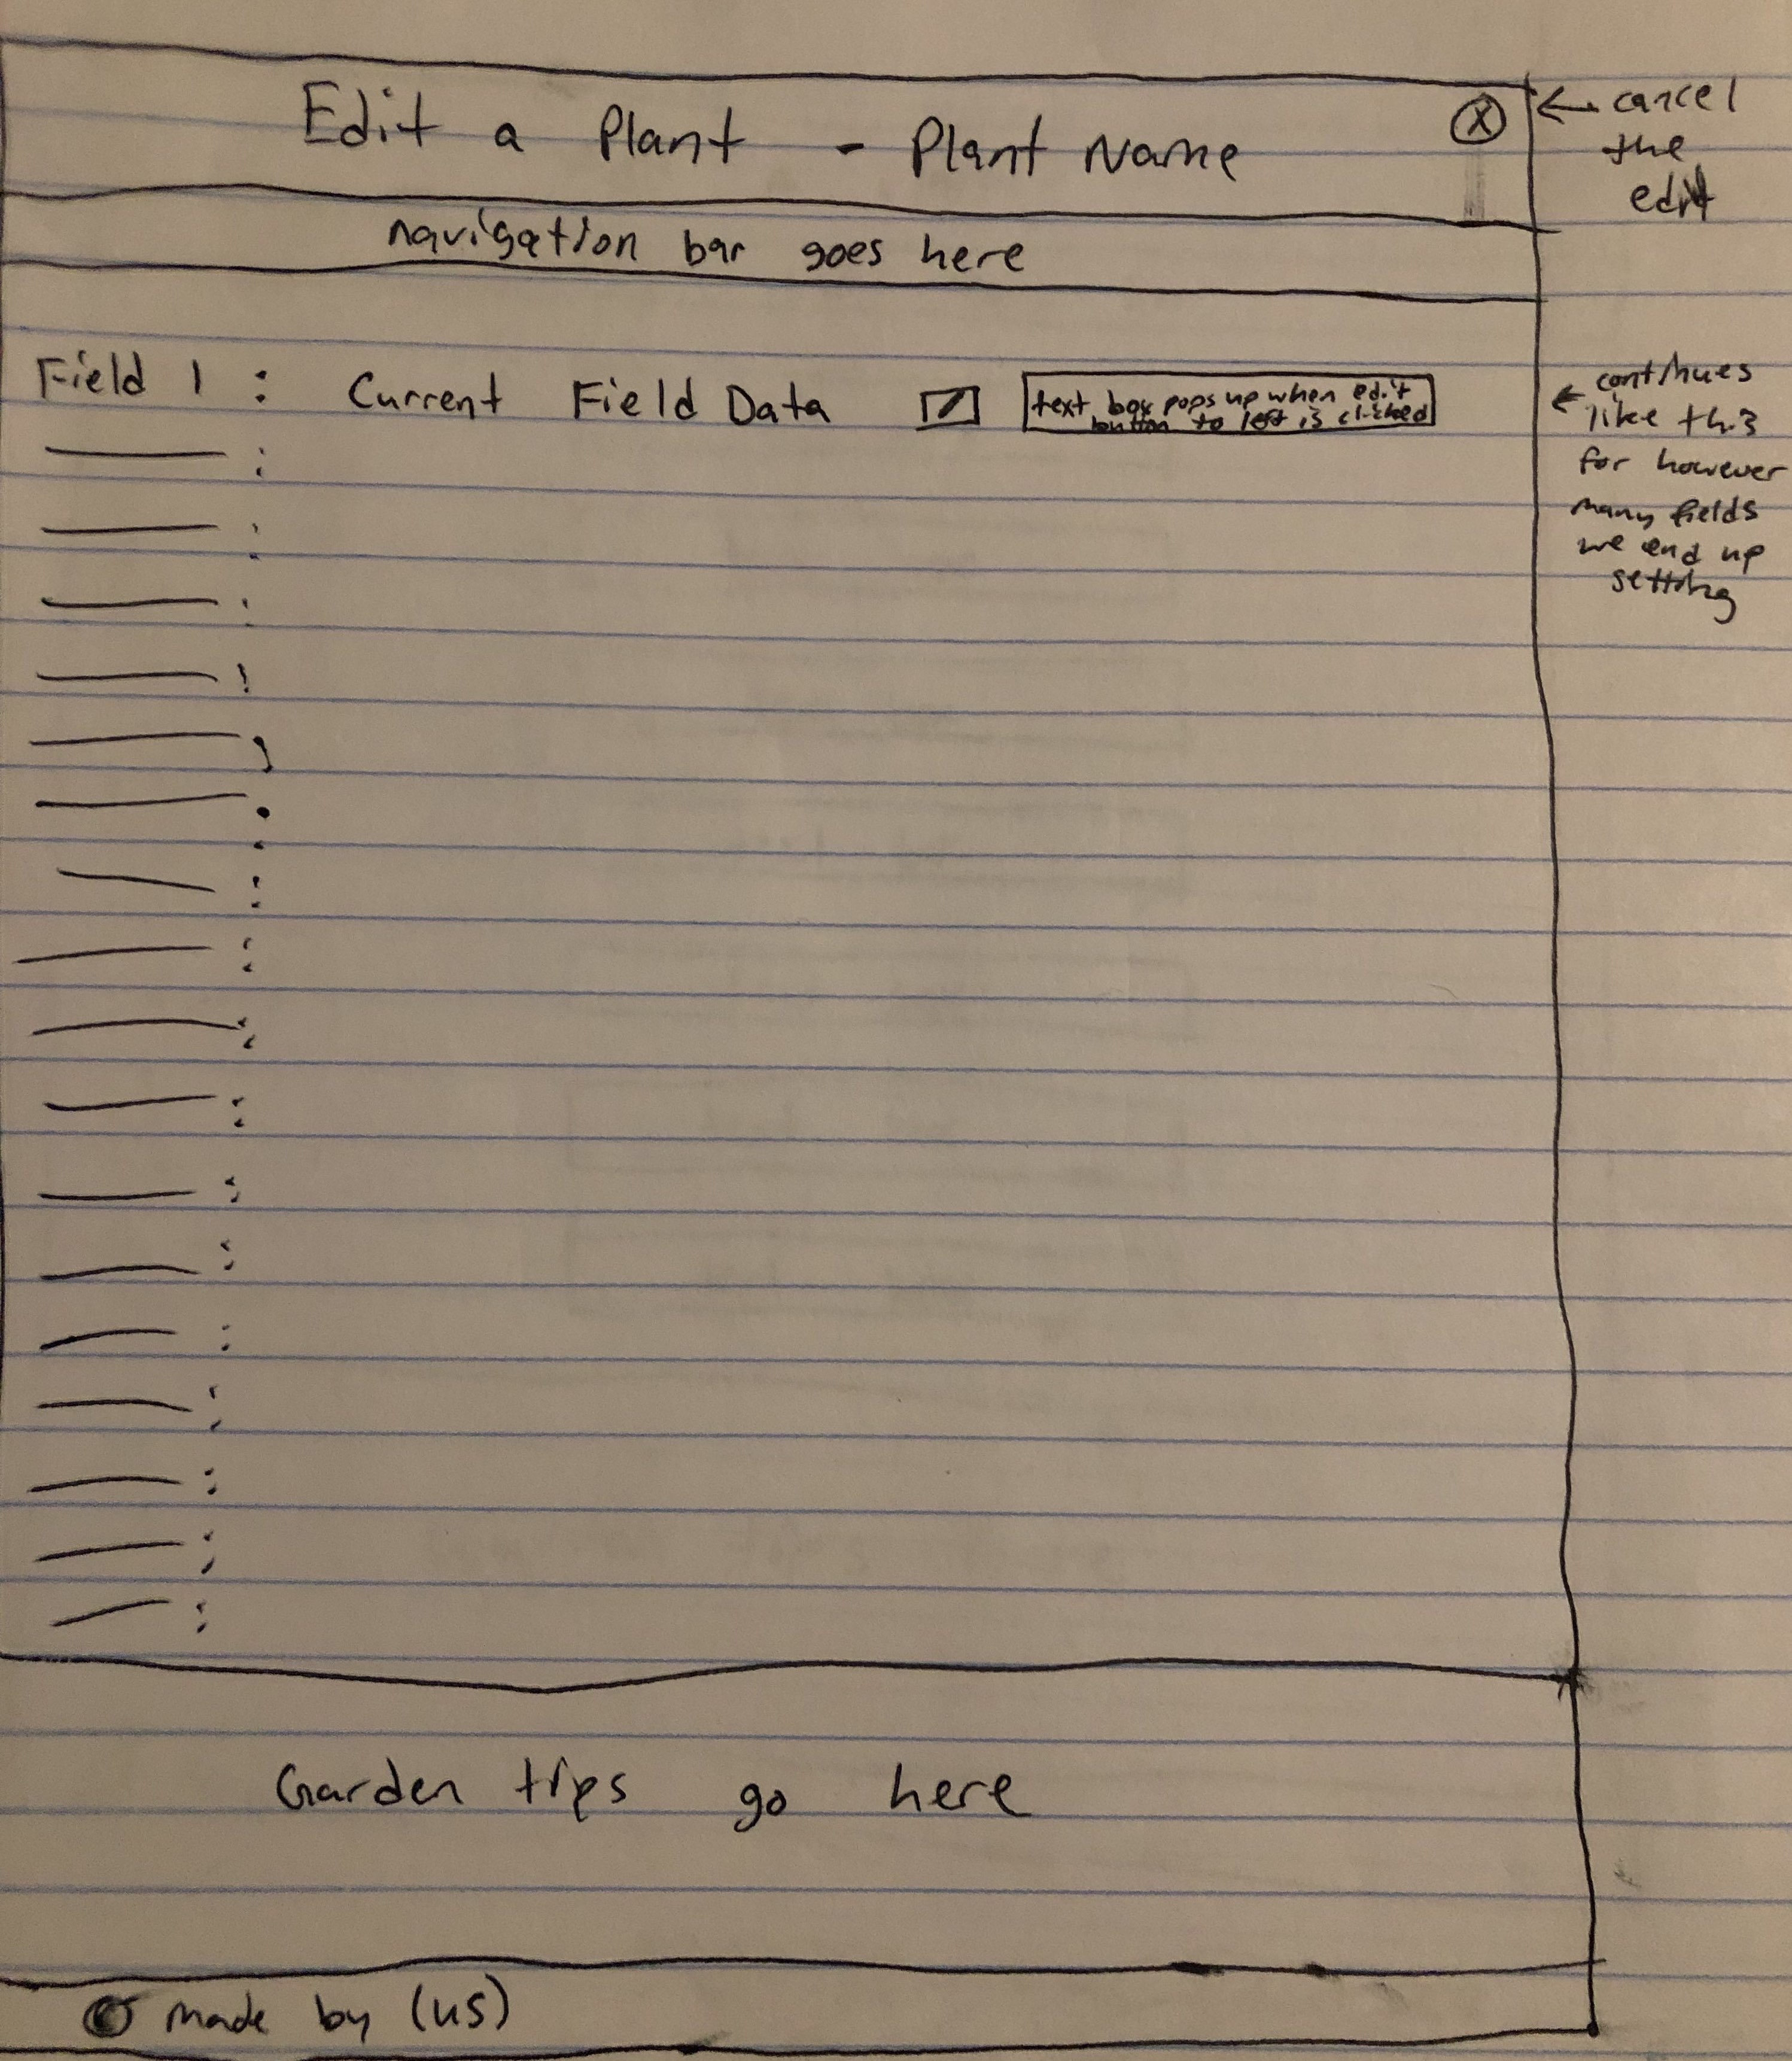 Edit a Plant - Plant Name
X
← cancel
the
edit
navigation bar goes here
Field 1 : Current Field Data
text box pops up when edit
button to left is clicked
← continues
like this
for however
many fields
we end up
setting
:
:
:
:
:
:
:
:
:
:
:
:
:
:
:
:
:
Garden tips go here
© made by (us)